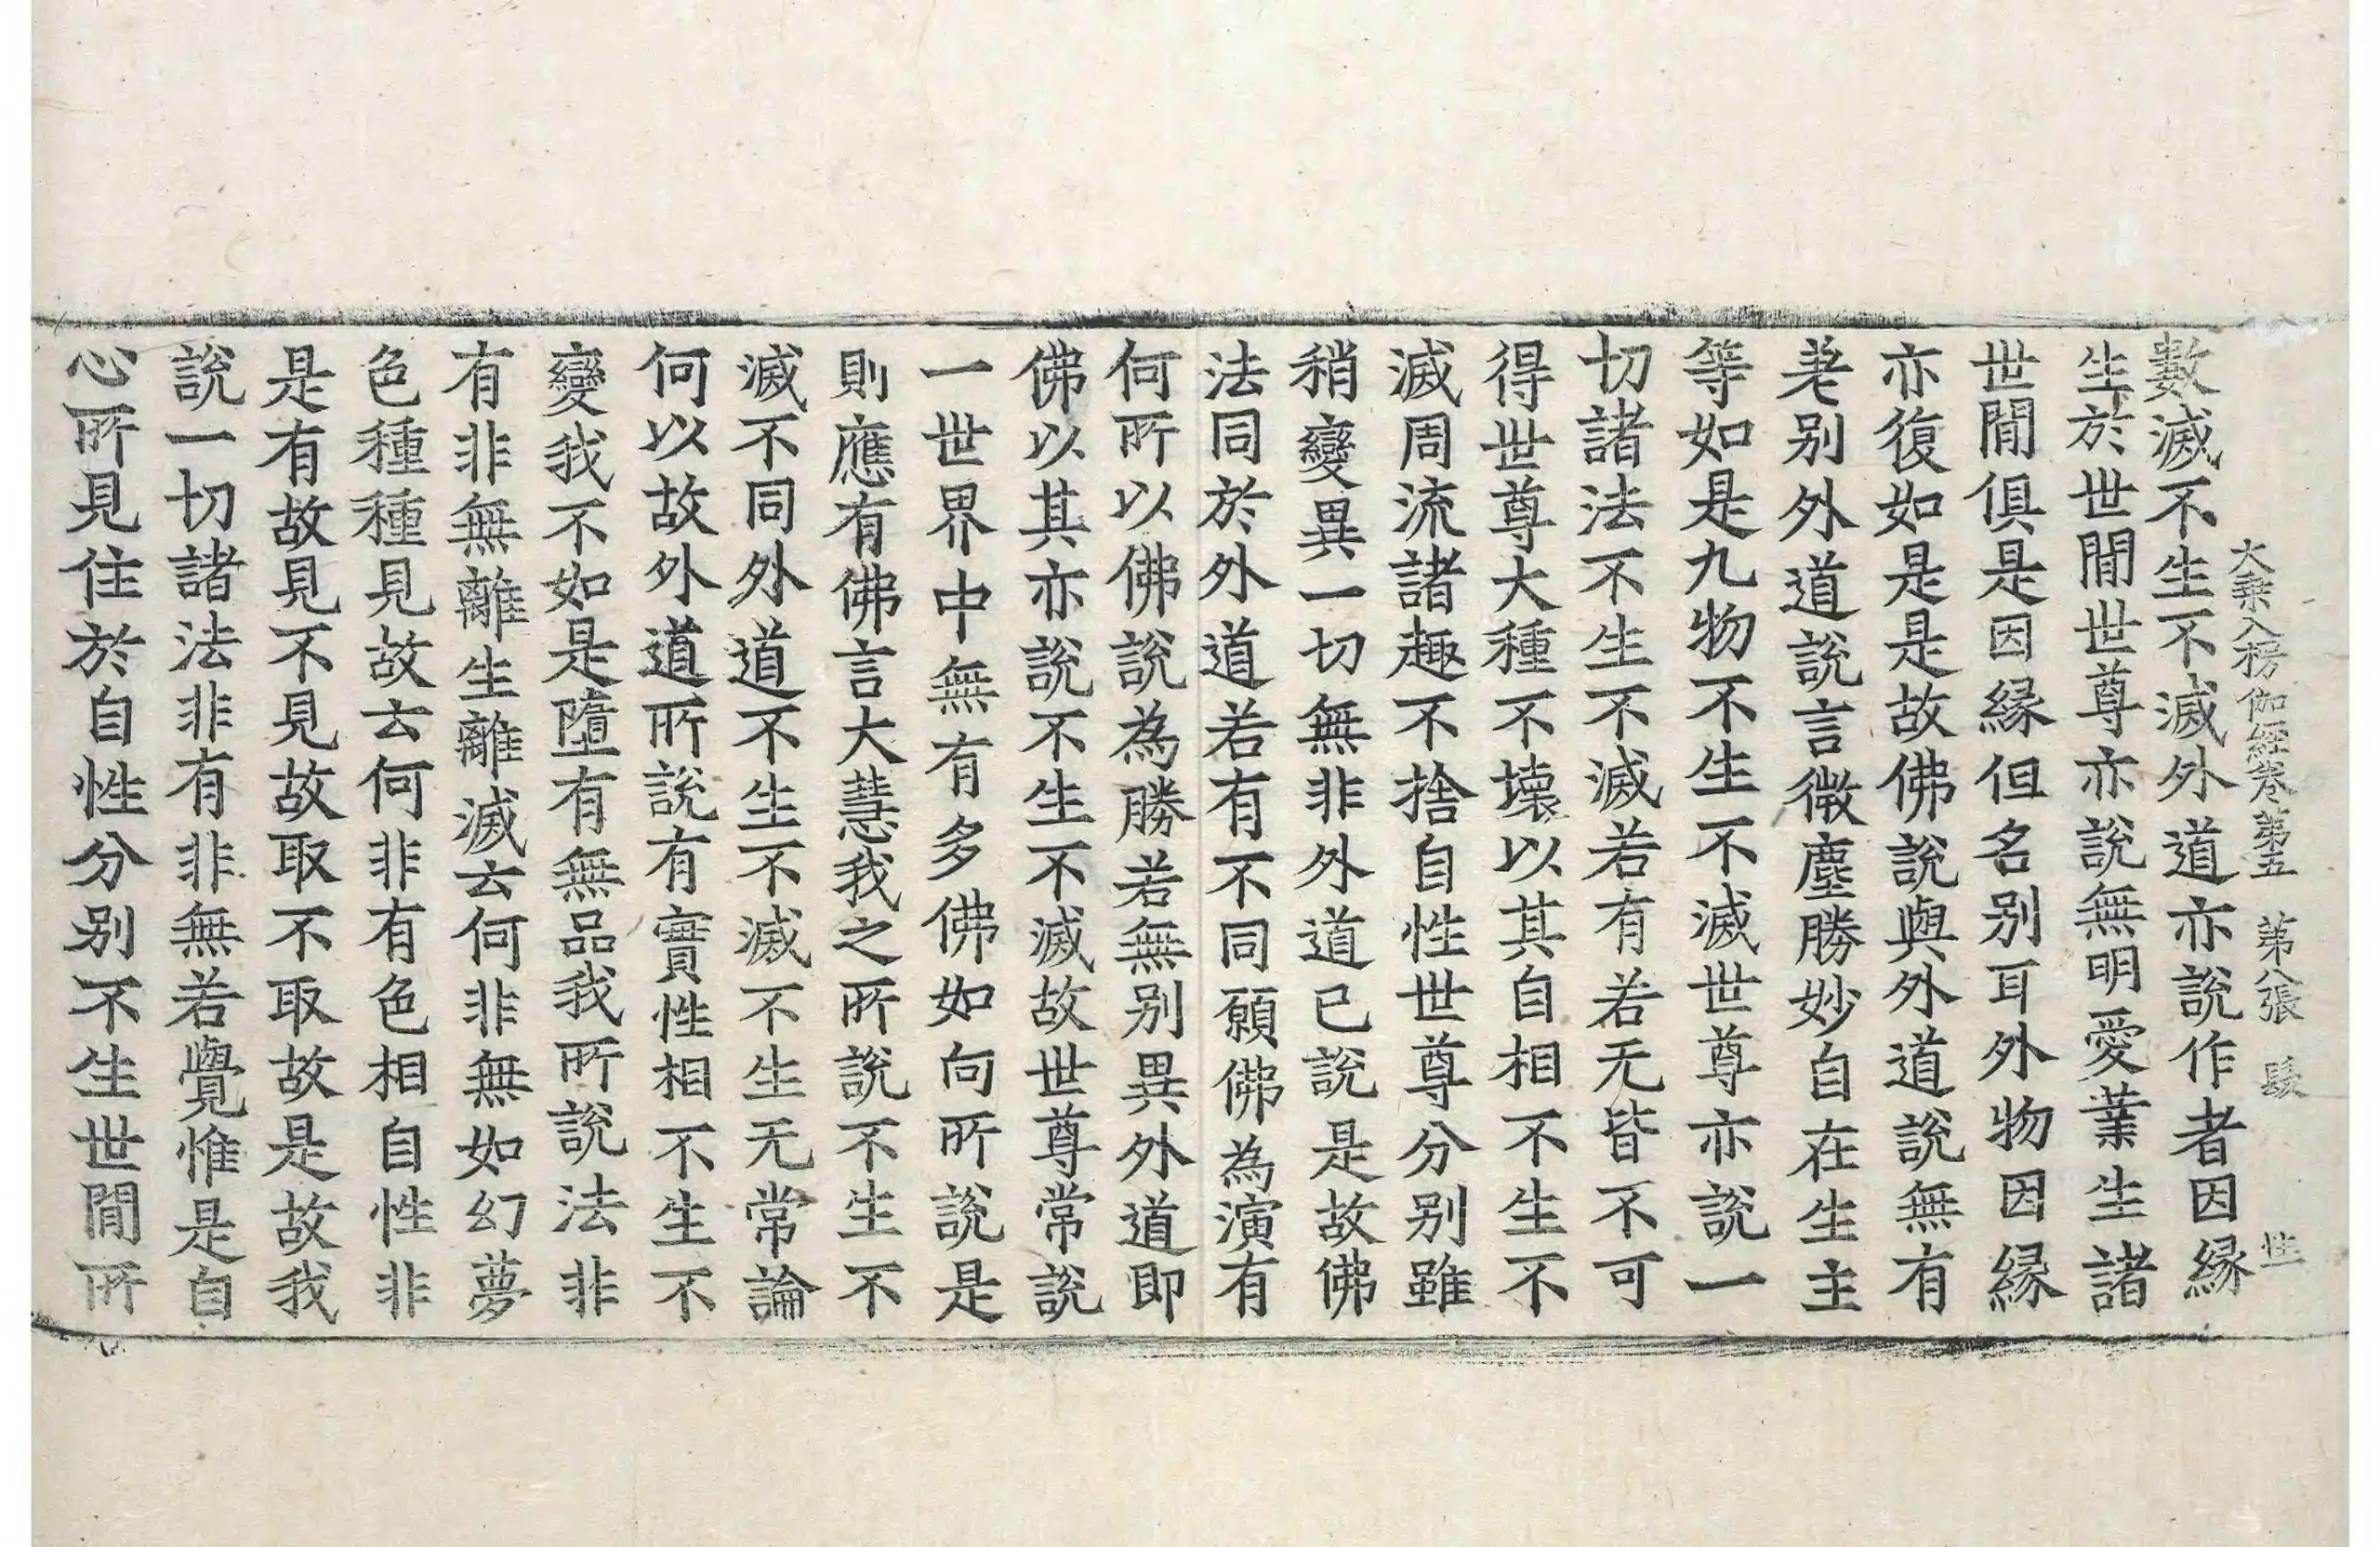 大乘入楞伽經卷第五 第八張 髮 性
數滅不生不滅外道亦說作者因緣
生於世間世尊亦說無明愛業生諸
世間俱是因緣但名別耳外物因緣
亦復如是是故佛說與外道說無有
差別外道說言微塵勝妙自在生主
等如是九物不生不滅世尊亦說一
切諸法不生不滅若有若无皆不可
得世尊大種不壞以其自相不生不
滅周流諸趣不捨自性世尊分別雖
稍變異一切無非外道已說是故佛
法同於外道若有不同願佛為演有
何所以佛說為勝若無別異外道即
佛以其亦說不生不滅故世尊常說
一世界中無有多佛如向所說是
則應有佛言大慧我之所說不生不
滅不同外道不生不滅不生无常論
何以故外道所說有實性相不生不
變我不如是墮有無品我所說法非
有非無離生離滅云何非無如幻夢
色種種見故云何非有色相自性非
是有故見不見故取不取故是故我
說一切諸法非有非無若覺惟是自
心所見住於自性分別不生世間所